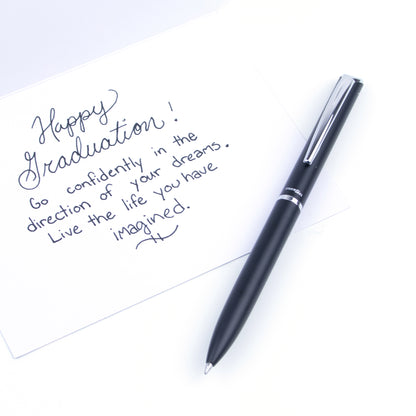 Happy
Graduation!
Go confidently in the
direction of your dreams.
Live the life you have
imagined.